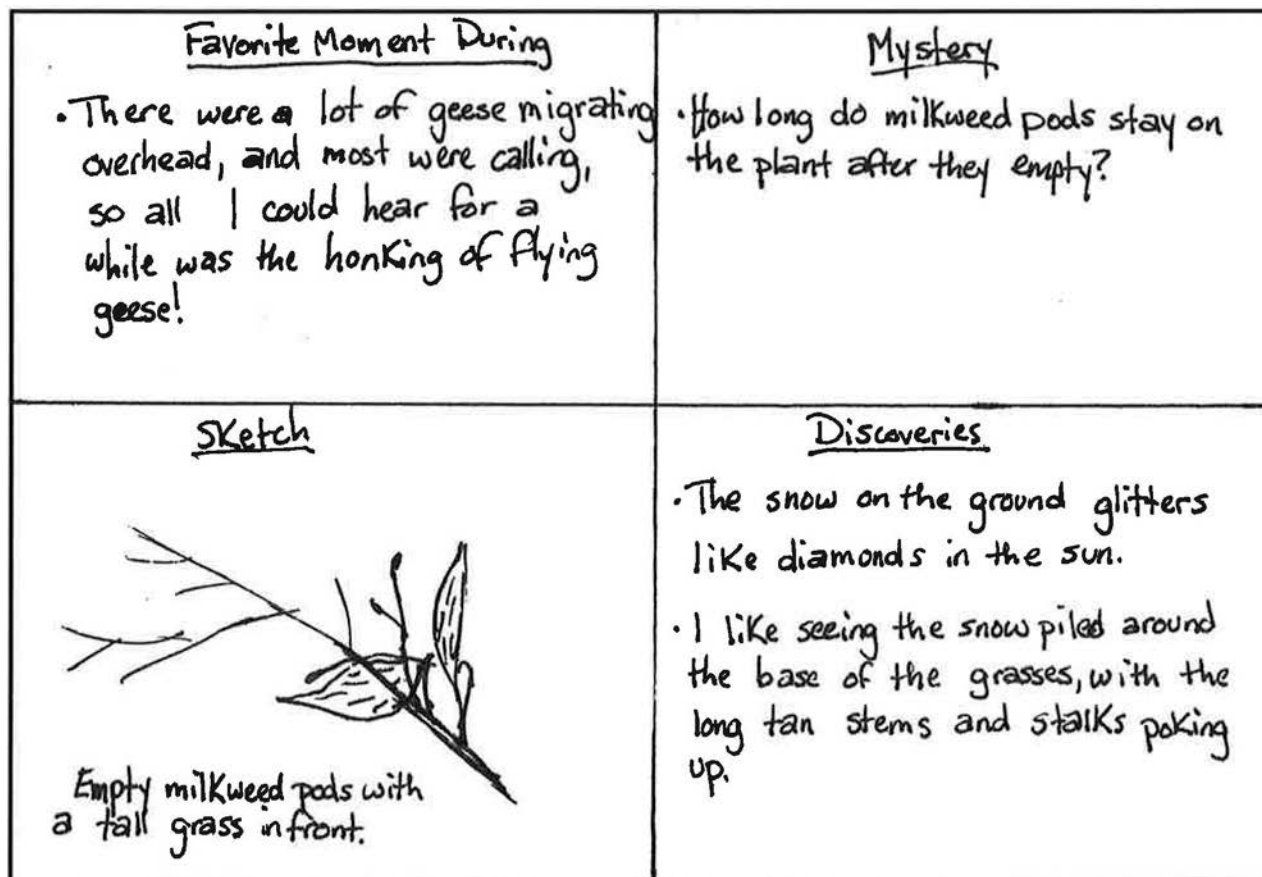 Favorite Moment During
• There were a lot of geese migrating
overhead, and most were calling,
so all I could hear for a
while was the honking of flying
geese!
Mystery
• How long do milkweed pods stay on
the plant after they empty?
Sketch
Empty milkweed pods with
a tall grass in front.
Discoveries
• The snow on the ground glitters
like diamonds in the sun.
• I like seeing the snow piled around
the base of the grasses, with the
long tan stems and stalks poking
up.